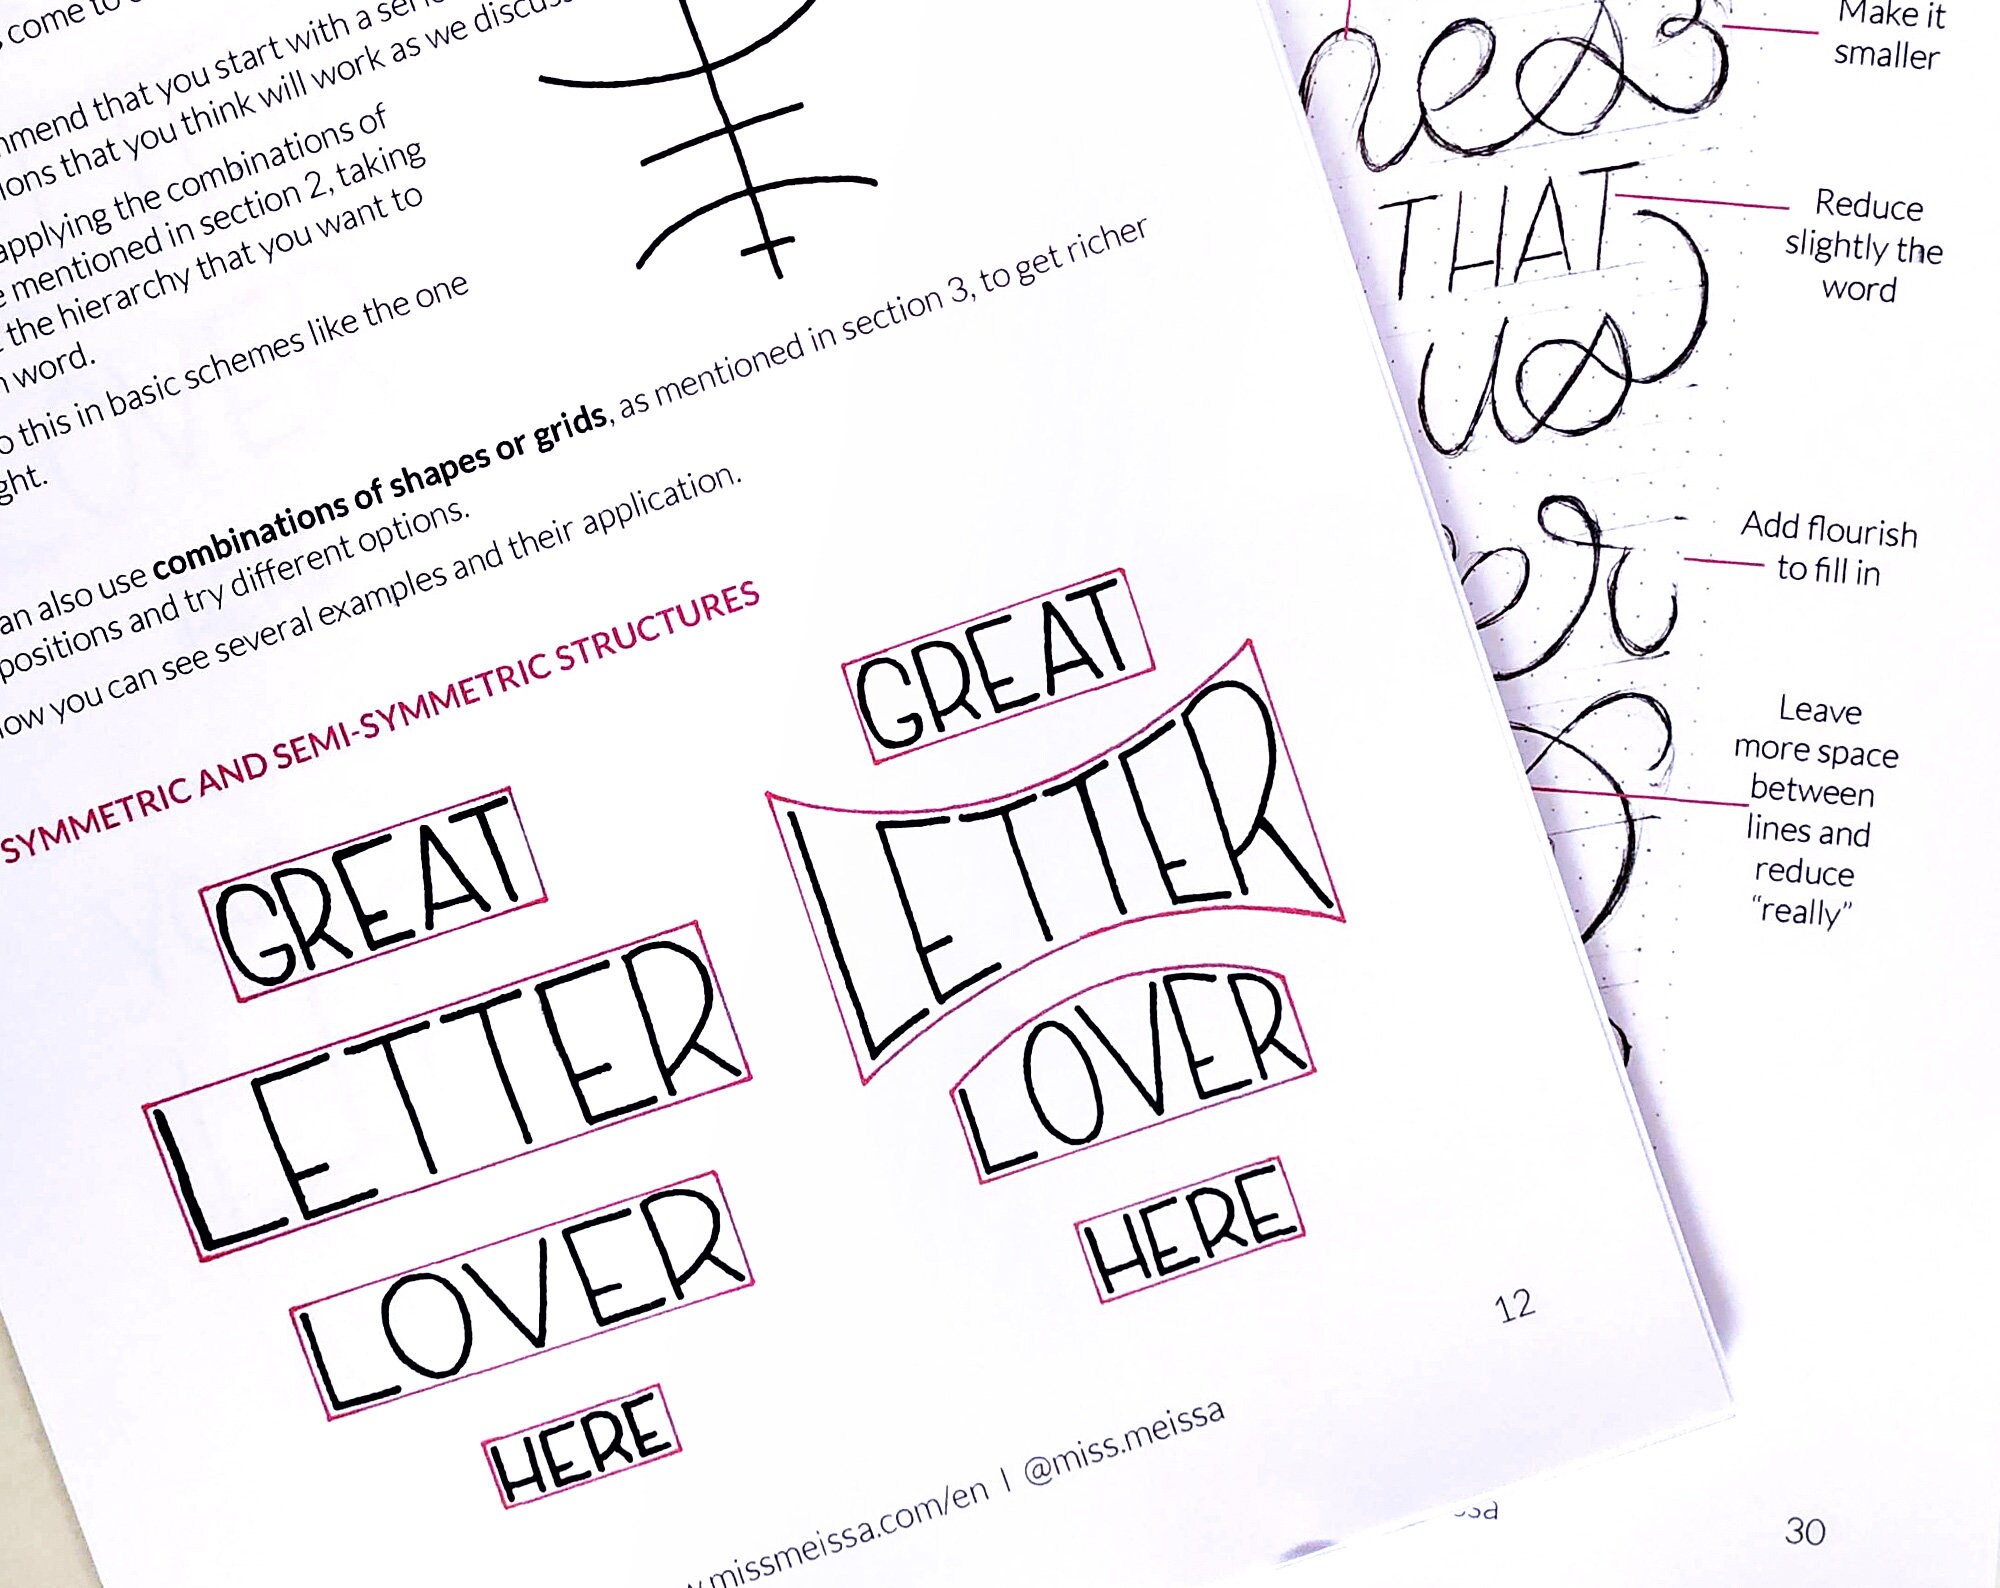 come to
mmend that you start with a
ions that you think will work as we
applying the combinations of
mentioned in section 2, taking
the hierarchy that you want to
word.
this in basic schemes like the one
ght.
an also use combinations of shapes or grids, as mentioned in section 3, to get richer
positions and try different options.
ow you can see several examples and their application.
SYMMETRIC AND SEMI-SYMMETRIC STRUCTURES
GREAT
LETTER
LOVER
HERE
GREAT
LETTER
LOVER
HERE
12
.missmeissa.com/en | @miss.meissa
THAT
us
er
Make it
smaller
Reduce
slightly the
word
Add flourish
to fill in
Leave
more space
between
lines and
reduce
“really”
30